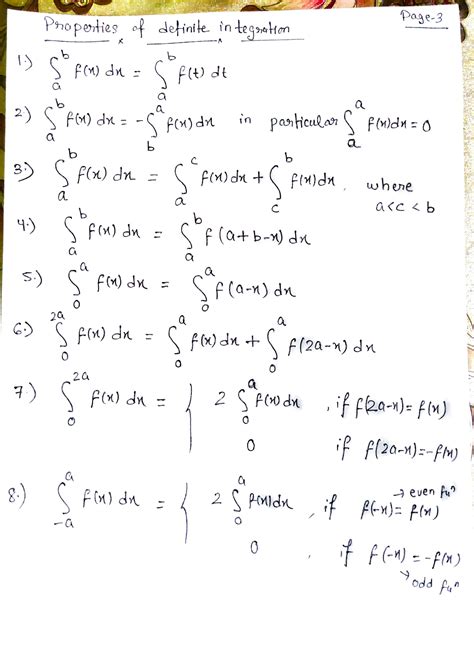 Page-3
Properties of definite integration
1.) ∫_a^b f(x) dx = ∫_a^b f(t) dt
2) ∫_a^b f(x) dx = -∫_b^a f(x) dx in particular ∫_a^a f(x) dx = 0
3.) ∫_a^b f(x) dx = ∫_a^c f(x) dx + ∫_c^b f(x) dx, where
a<c<b
4.) ∫_a^b f(x) dx = ∫_a^b f(a+b-x) dx
5.) ∫_0^a f(x) dx = ∫_0^a f(a-x) dx
6.) ∫_0^{2a} f(x) dx = ∫_0^a f(x) dx + ∫_0^a f(2a-x) dx
7) ∫_0^{2a} f(x) dx = { 2 ∫_0^a f(x) dx , if f(2a-x) = f(x)
0 if f(2a-x) = -f(x)
→ even fuⁿ
8.) ∫_{-a}^a f(x) dx = { 2 ∫_0^a f(x) dx , if f(-x) = f(x)
0 , if f(-x) = -f(x)
→ odd fuⁿ